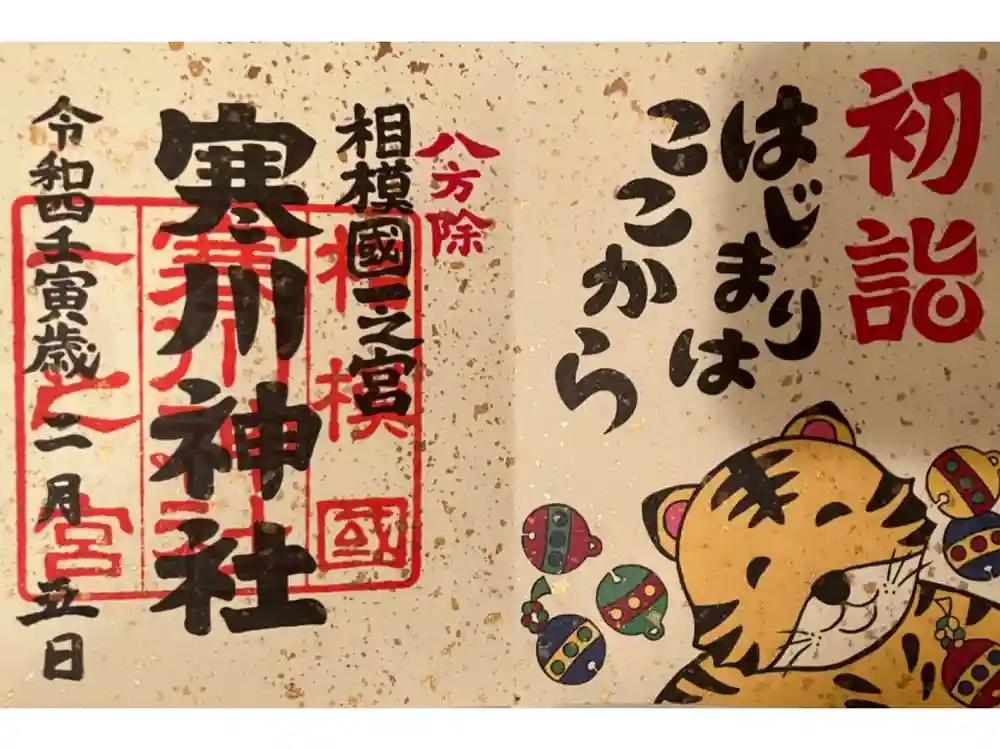 初詣
はじまりは
ここから
八方除
相模國一之宮
寒川神社
令和四壬寅歳二月五日
相模國
寒川神社
一之宮